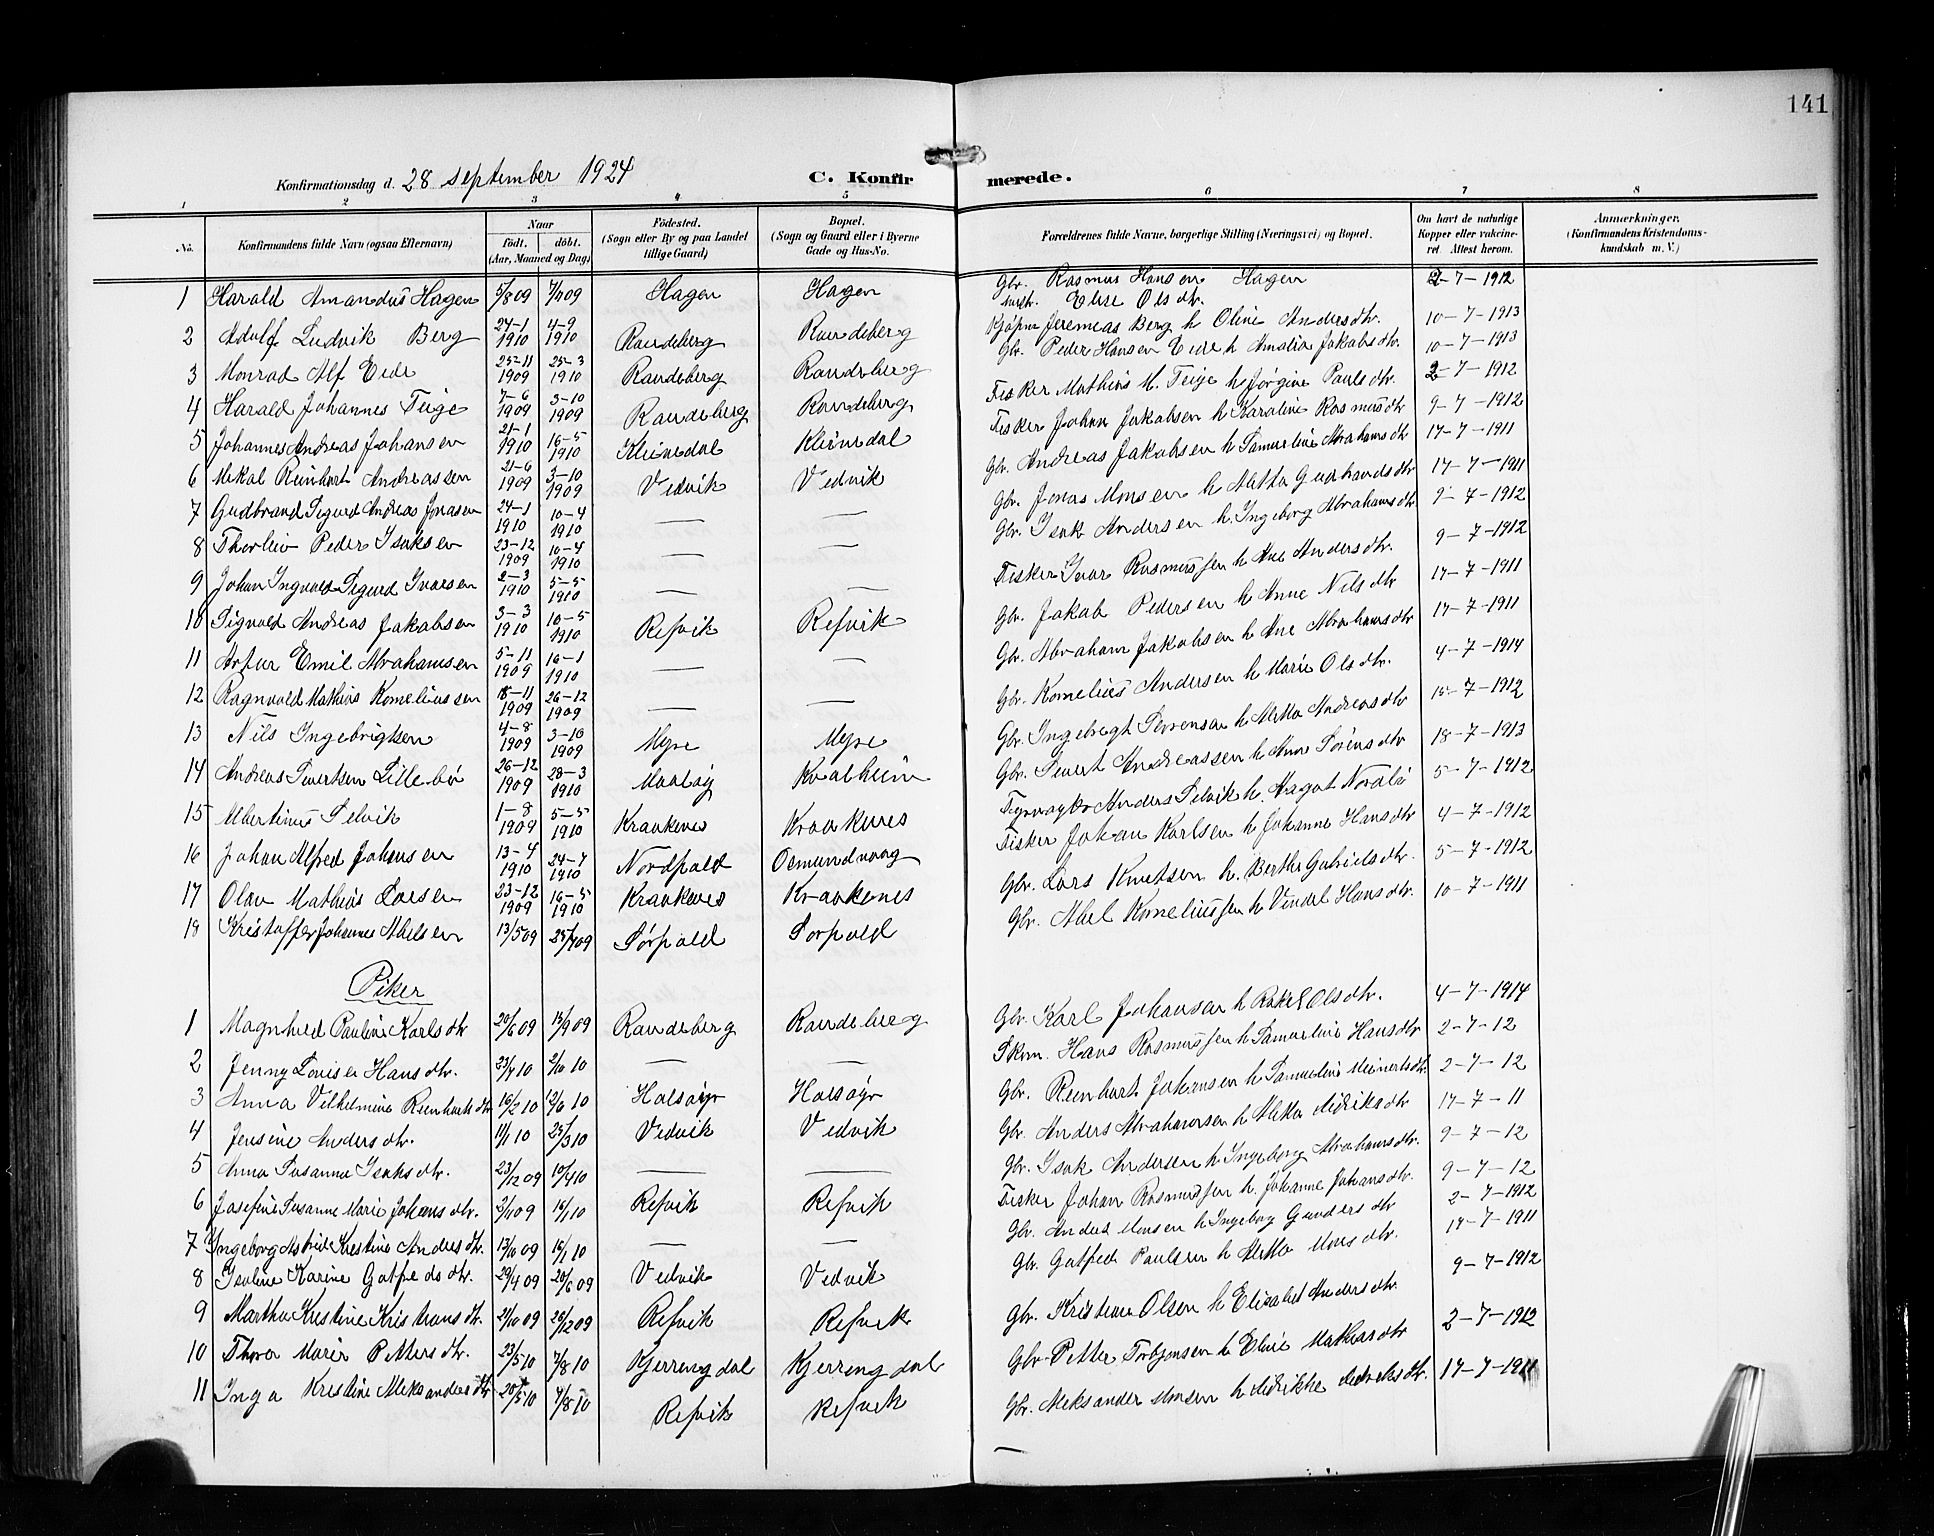 141
Konfirmationsdag d. 28 september 1924 C. Konfirmerede.
1 2 3 4 5 6 7 8
No. Konfirmandens fulde Navn (ogsaa Efternavn) Naar födt. döbt. (Aar, Maaned og Dag) Födested. (Sogn eller By og paa Landet tillige Gaard) Bopæl. (Sogn og Gaard eller i Byerne Gade og Hus-No. Forældrenes fulde Navne, borgerlige Stilling (Næringsvei) og Bopæl. Om havt de naturlige Kopper eller vakcineret. Attest herom. Anmærkninger. (Konfirmandens Kristendomskundskab m. V.)
1 Harald Amandus Hagen 5/8 09 7/11 09 Hagen Hagen Gbr. Rasmus Hansen Hagen 2-7-1912
hustr. Elise Olsdtr.
2 Adolf Ludvik Berg 24-1 1910 4-9 1910 Raudeberg Raudeberg Kjøpm Jeremias Berg h Oline Andersdtr. 10-7-1913
3 Monrad Alf Eide 25-11 1909 25-3 1910 Raudeberg Raudeberg Gbr. Peder Hansen Eide h Amalia Jakobsdtr 10-7-1913
4 Harald Johannes Teige 7-6 1909 3-10 1909 Raudeberg Raudeberg Fisker Mathias M. Teige h Jørgine Paulsdtr 2-7-1912
5 Johannes Andreas Johansen 21-1 1910 16-5 1910 Kleinedal Kleinedal Fisker Johan Jakobsen h Karoline Rasmusdtr 9-7-1912
6 Mikal Reinhart Andreassen 21-6 1909 3-10 1909 Vedvik Vedvik Gbr. Andreas Jakobsen h Samueline Abrahamsdtr 17-7-1911
7 Gudbrand Sigurd Andreas Jonasen 24-1 1910 10-4 1910 — — Gbr. Jonas Monsen h Metta Gudbrandsdtr 17-7-1911
8 Thorleiv Peder Isaksen 23-12 1909 10-4 1910 — — Gbr. Isak Andersen h. Ingeborg Abrahamsdtr. 9-7-1912
9 Johan Ingvald Sigurd Ivarsen 2-3 1910 5-5 1910 — — Fisker Ivar Rasmussen h Ane Andersdtr. 9-7-1912
10 Sigvald Andreas Jakobsen 3-3 1910 10-5 1910 Refvik Refvik Gbr. Jakob Pedersen h Anne Nilsdtr 17-7-1911
11 Artur Emil Abrahamsen 5-11 1909 16-1 1910 — — Gbr. Abraham Jakobsen h Ane Abrahamsdtr 17-7-1911
12 Ragnvald Mathias Korneliussen 18-11 1909 26-12 1909 — — Gbr. Kornelius Andersen h Marie Olsdtr. 4-7-1914
13 Nils Ingebrigtsen 4-8 1909 3-10 1909 Myre Myre Gbr. Ingebrigt Sørensen h Metta Andreasdtr 15-7-1912
14 Andreas Sivertsen Lillebø 26-12 1909 28-3 1910 Maaløy Kvalheim Gbr. Sivert Andreassen h Anne Sørensdtr 18-7-1913
15 Albertinus Selvik 1-8 1909 5-5 1910 Kraakenes Kraakenes Fyrvagter Anders Selvik h. Magot Nordbø 5-7-1912
16 Johan Alfred Johansen 13-4 1910 24-7 1910 Nordpold Osmundvaag Fisker Johan Karlsen h Johanne Hansdtr 4-7-1912
17 Olav Mathias Larsen 23-12 1909 16-5 1910 Kraakenes Kraakenes Gbr. Lars Knutsen h. Berthe Gabrielsdtr. 5-7-1912
18 Kristoffer Johannes Abelsen 13/5 09 25/7 09 Sørpold Sørpold Gbr. Abel Korneliussen h Vindel Hansdtr. 10-7-1911
Piker
1 Magnhild Pauline Karlsdtr 20/6 09 13/9 09 Raudeberg Raudeberg Gbr. Karl Johansen h Rakel Olsdtr. 4-7-1914
2 Jenny Lovise Hansdtr. 23/4 10 2/10 10 — — Skom. Hans Rasmussen h Samueline Hansdtr 2-7-12
3 Anna Vilhelmine Reinhartsdtr 16/2 10 12/6 10 Halsøyr Halsøyr Gbr. Reinhart Johansen h Samueline Meinertsdtr. 2-7-12
4 Jensine Andersdtr. 11/1 10 25/3 10 Vedvik Vedvik Gbr. Anders Abrahamsen h Metta Didriksdtr 17-7-11
5 Anna Susanna Isaksdtr. 23/12 09 10/4 10 — — Gbr. Isak Andersen h Ingeborg Abrahamsdtr. 9-7-12
6 Josefine Susanne Marie Johansdtr. 2/11 09 14/1 10 Refvik Refvik Fisker Johan Rasmussen h. Johanne Johansdtr. 9-7-12
7 Ingeborg Astrid Kristine Andersdtr. 13/10 09 16/1 10 — — Gbr. Anders Monsen h Ingeborg Gundersdtr 2-7-1912
8 Isoline Karine Gotfredsdtr. 29/4 09 20/6 09 Vedvik Vedvik Gbr. Gotfred Paulsen h Metta Monsdtr. 17-7-1911
9 Martha Kristine Kristiansdtr. 21/10 09 26/12 09 Refvik Refvik Gbr. Kristian Olsen h Elisabet Andersdtr. 9-7-1912
10 Thora Marie Pettersdtr. 23/5 10 7/8 10 Kjerringdal Kjerringdal Gbr. Petter Torbjønsen h Eline Mathiasdtr 2-7-1912
11 Inga Kristine Aleksandersdtr 20/5 10 7/8 10 Refvik Refvik Gbr. Aleksander Monsen h Didrikke Didriksdtr. 17-7-1911